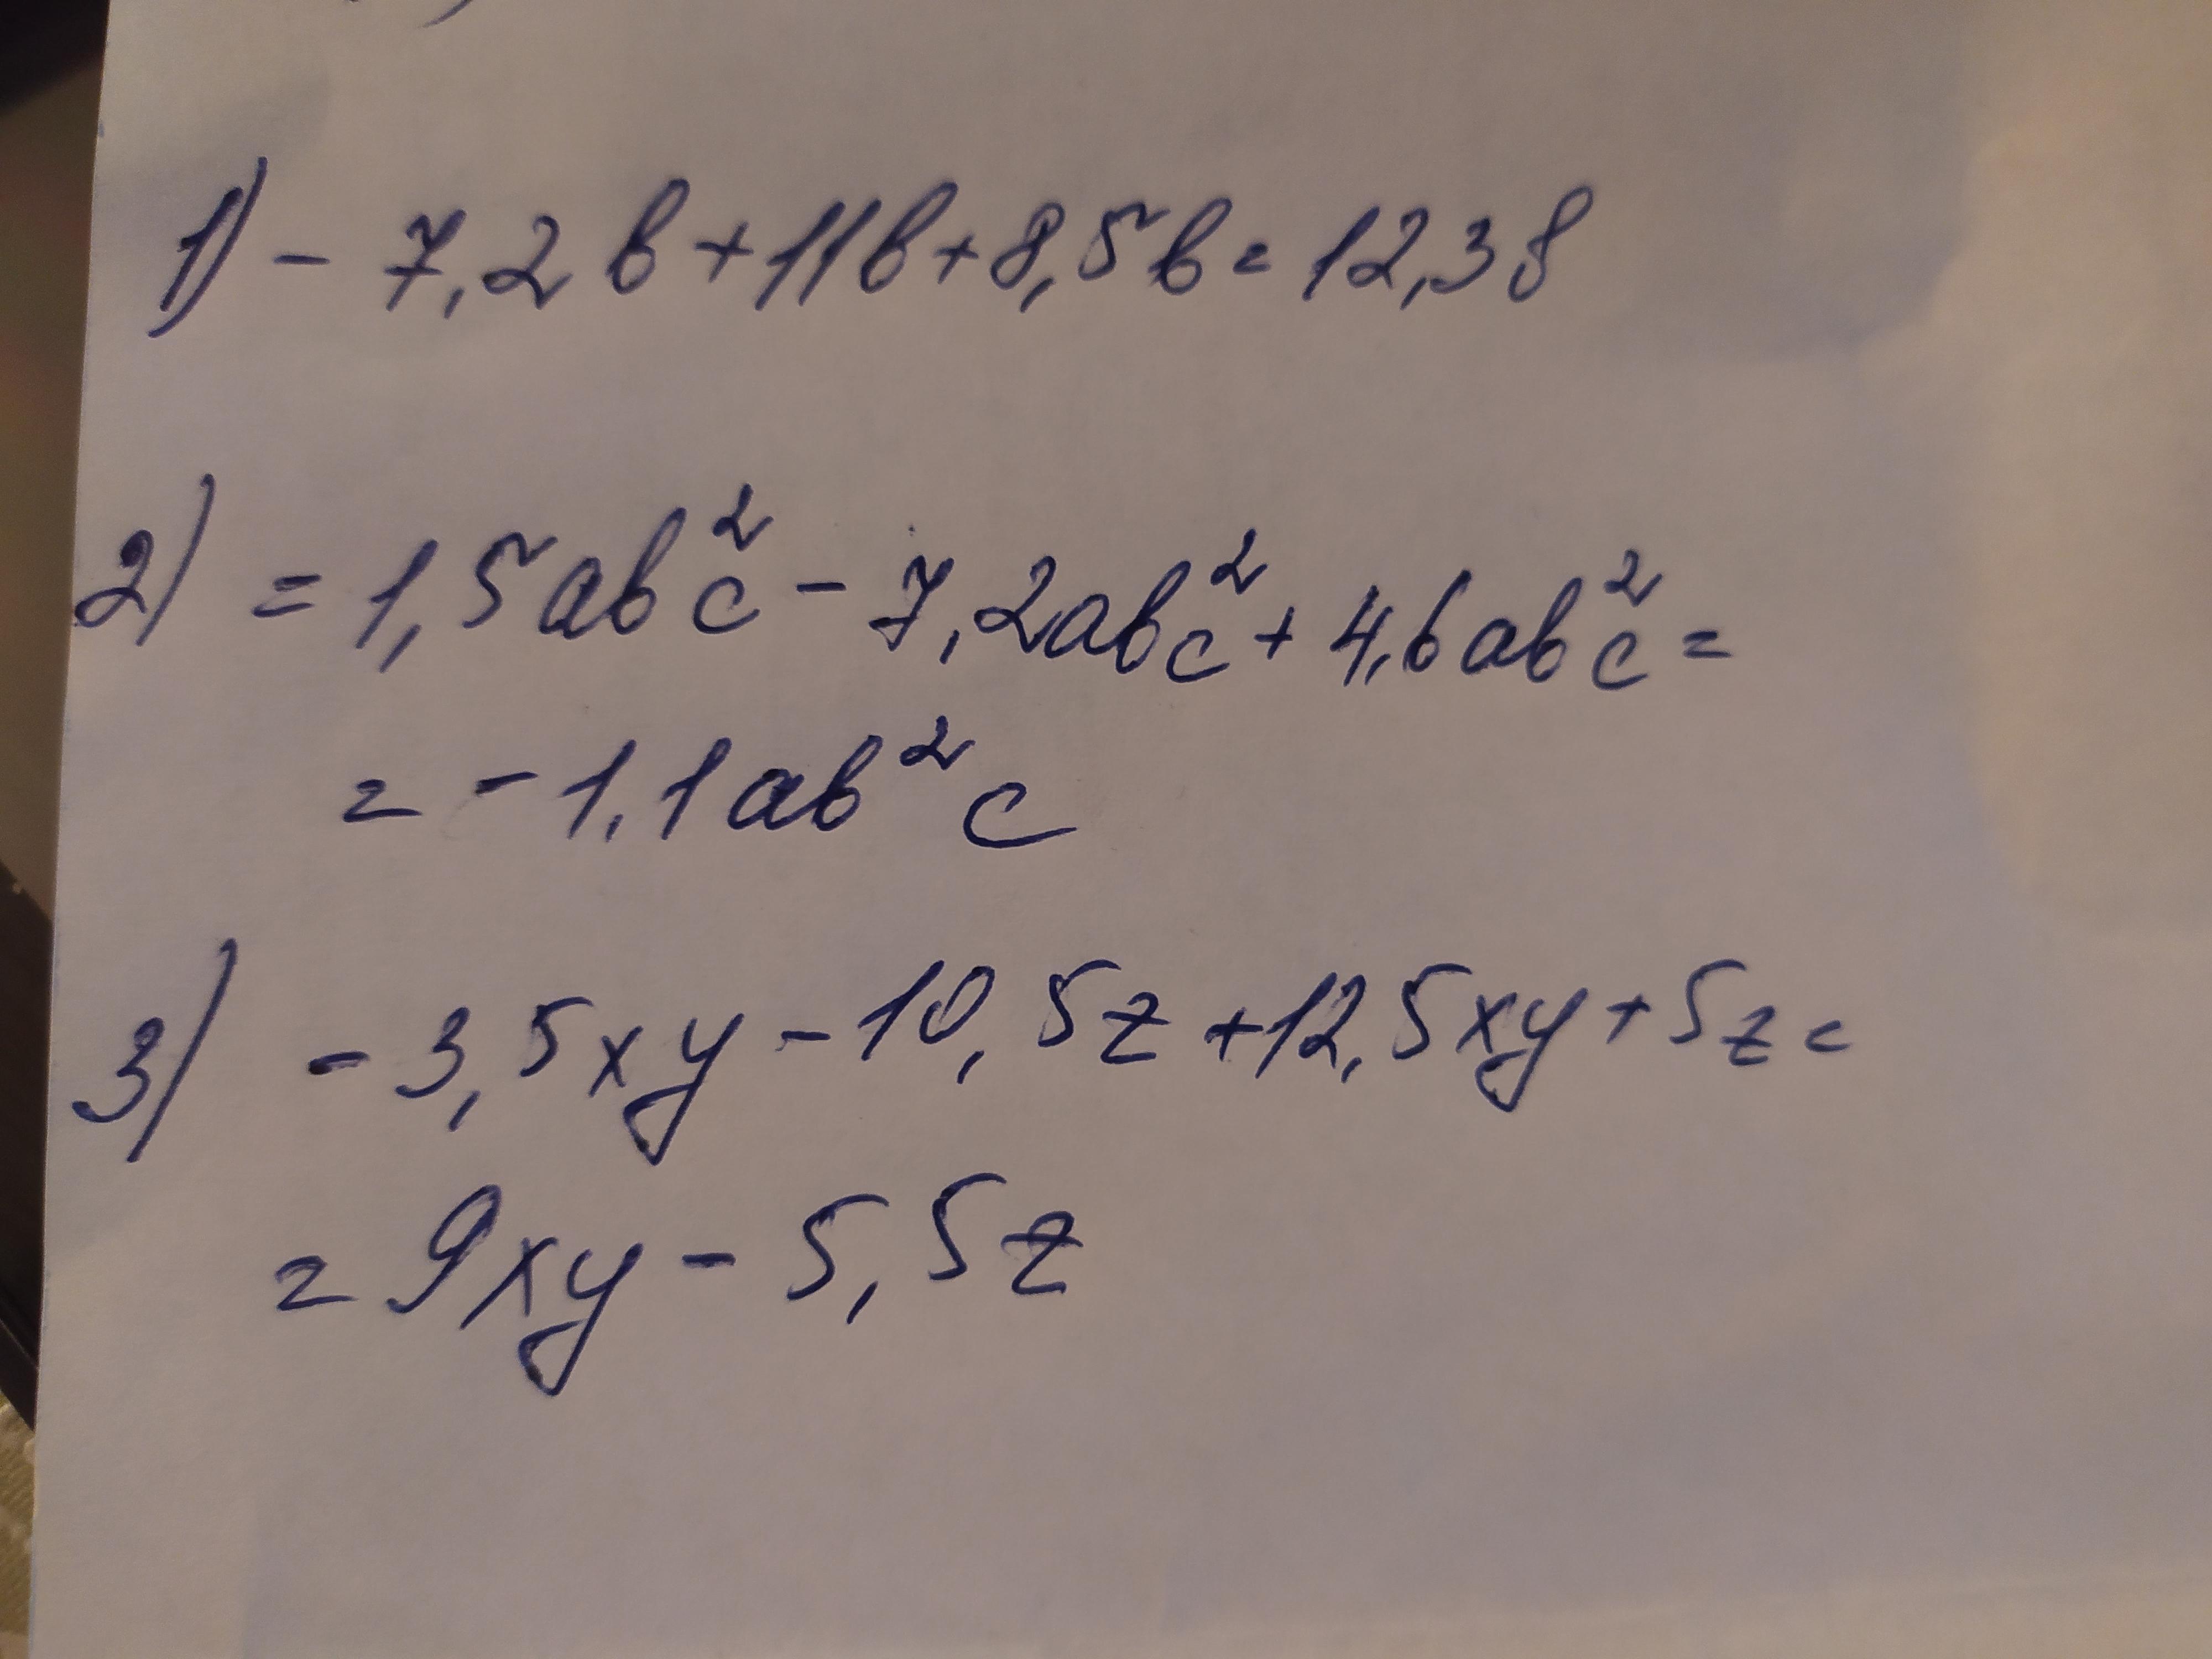 1) - 7,2b+11b+8,5b=12,3b
2) = 1,5ab²c - 7,2ab²c + 4,6ab²c =
= -1,1ab²c
3) - 3,5xy - 10,5z + 12,5xy + 5z =
= 9xy - 5,5z